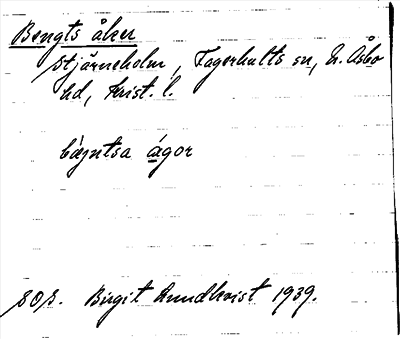 Bengts åker
Stjärneholm, Fagerhults sn, N. Åsbo
hd, Krist. l.
bàjntsa ågor
Birgit Lundkvist 1939.